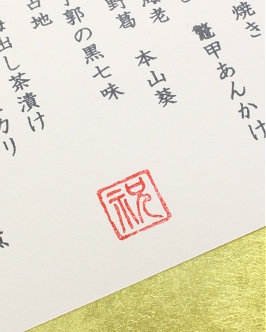 焼き
鼈甲あんかけ
老　本山葵
野葛
郭の黒七味
古地
出し茶漬け
カリ
祝